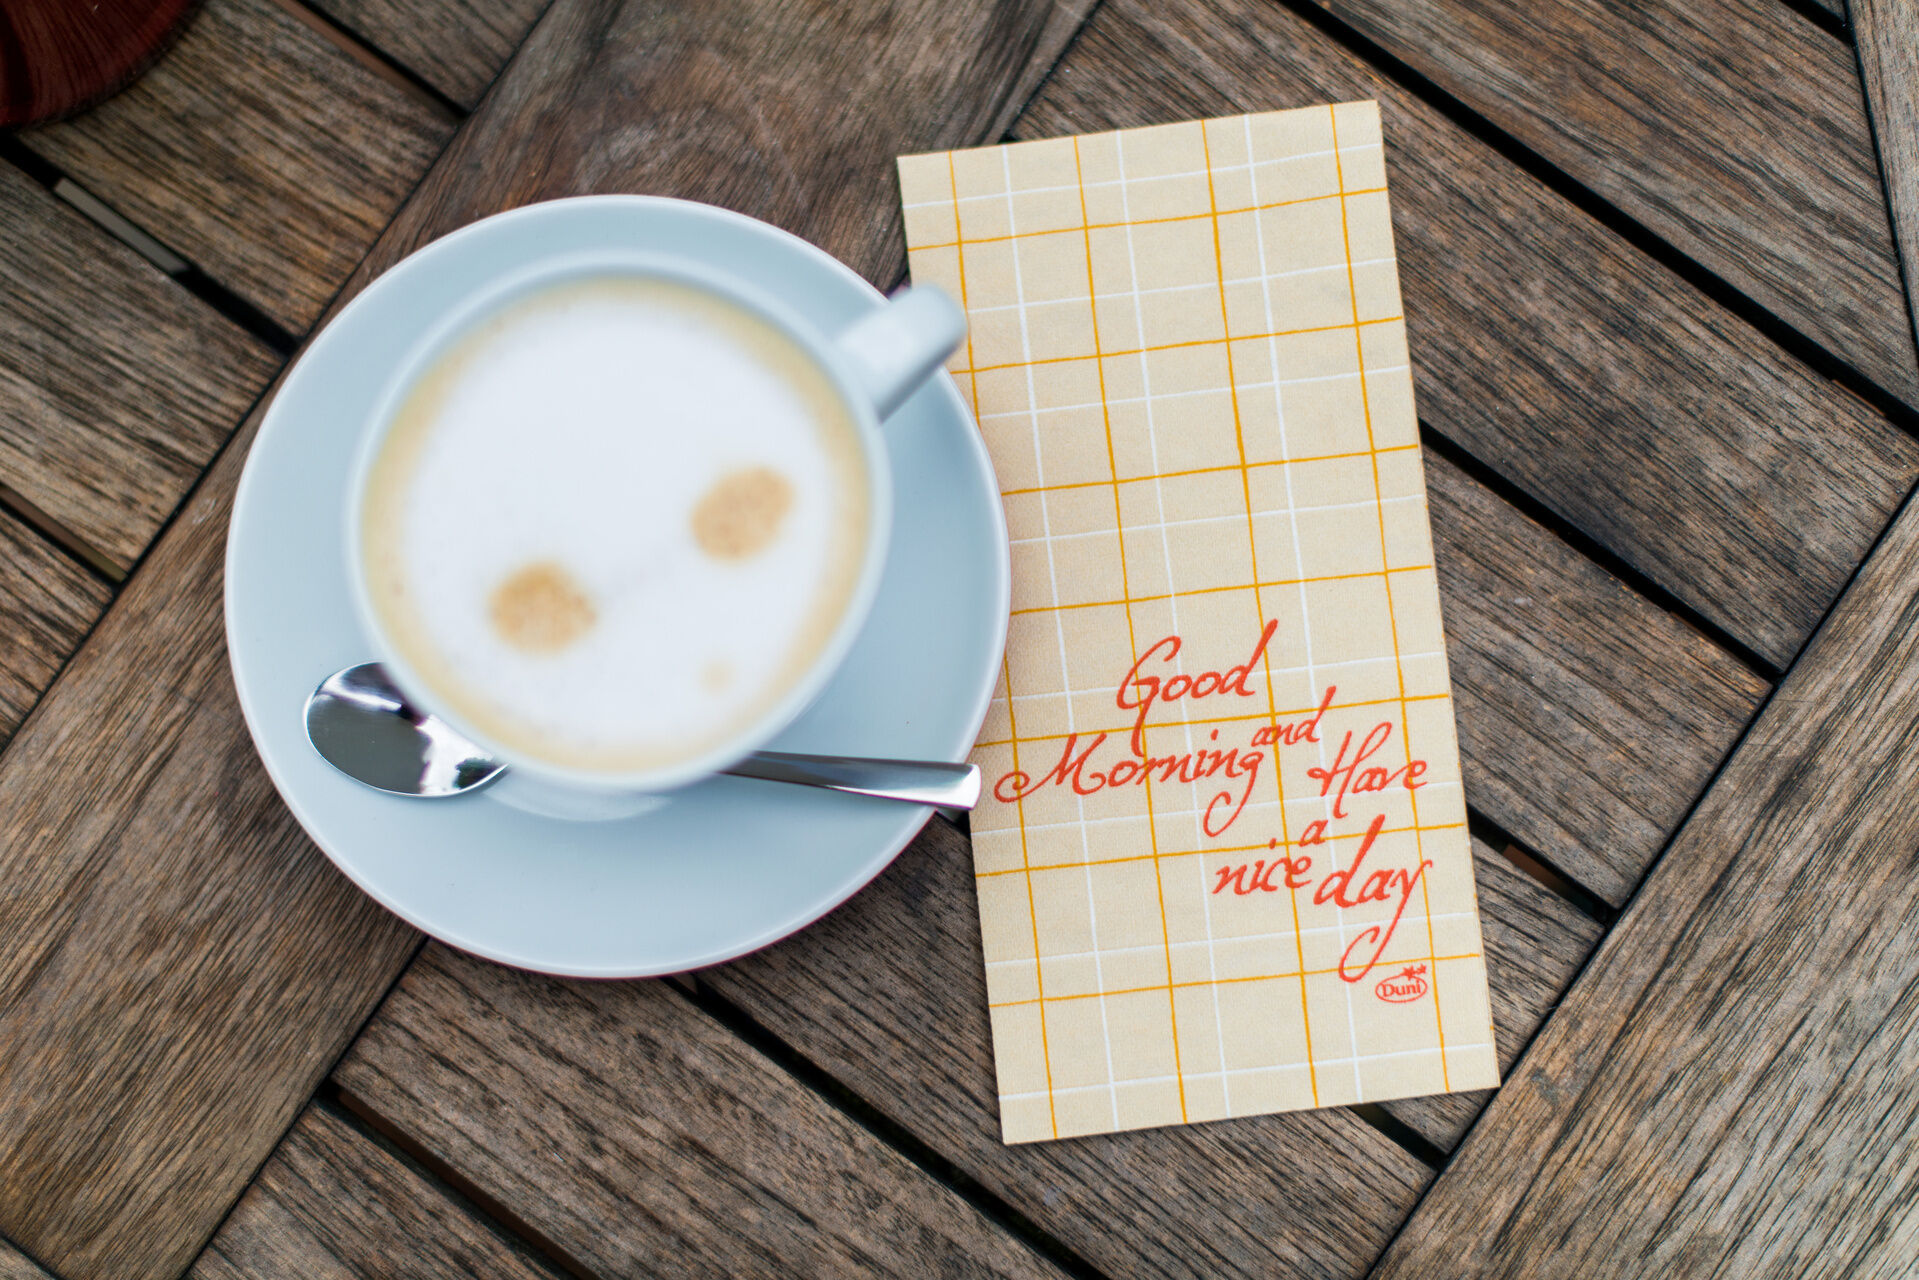 Good
Morning and Have
a
nice day
Duni